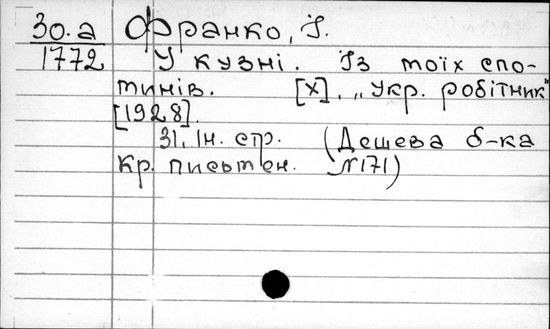 30.а Франко, І.
1772 У кузні. Із моїх спо-
минів. [Х], „Укр. робітник"
[1928].
31, Ін. стр. (Дешева б-ка
Кр. письмен. №171)